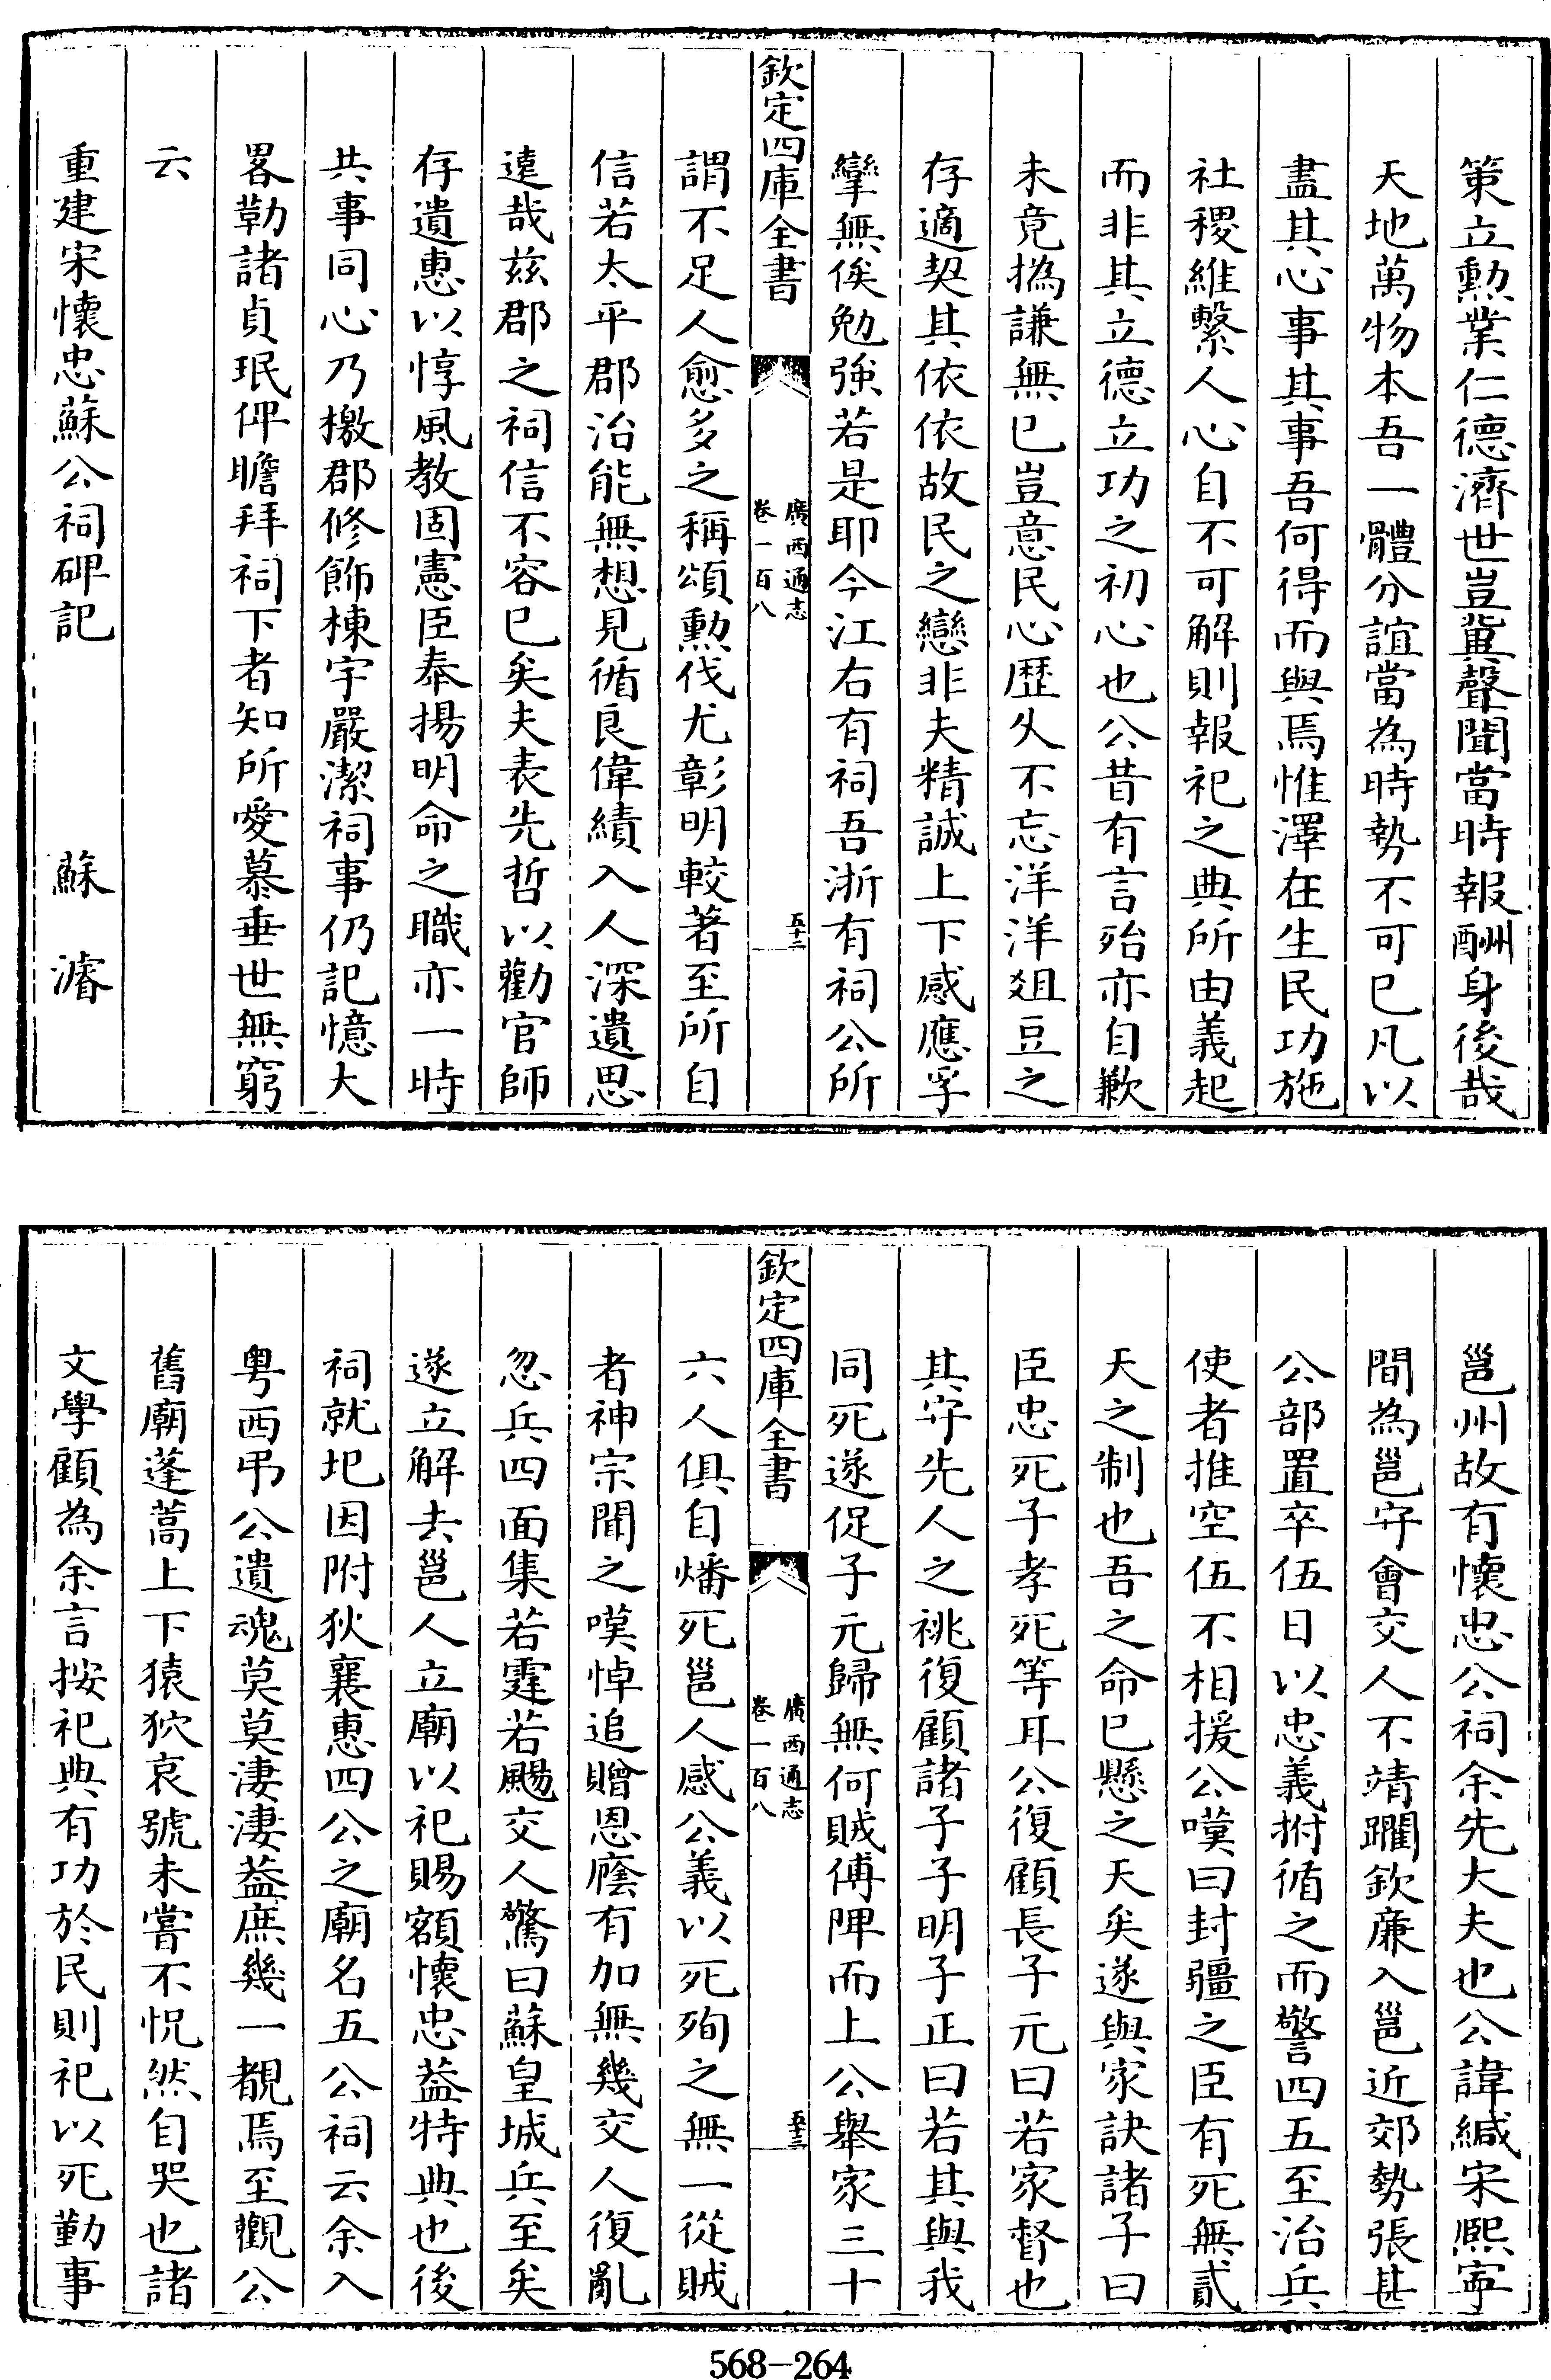 策立勲業仁德濟世豈冀聲聞當時報酬身後哉
天地萬物本吾一體分誼當為時勢不可已凡以
盡其心事其事吾何得而與焉惟澤在生民功施
社稷維繫人心自不可解則報祀之典所由義起
而非其立德立功之初心也公昔有言殆亦自歉
未竟撝謙無已豈意民心歴久不忘洋洋爼豆之
存適契其依依故民之戀非夫精誠上下感應孚
孿無俟勉強若是耶今江右有祠吾浙有祠公所
欽定四庫全書
廣西通志
卷一百八
五十二
謂不足人愈多之稱頌勲伐尤彰明較著至所自
信若太平郡治能無想見循良偉績入人深遺思
遠哉兹郡之祠信不容已矣夫表先哲以勸官師
存遺惠以惇風教固憲臣奉揚明命之職亦一時
共事同心乃檄郡修飾棟宇嚴潔祠事仍記憶大
畧勒諸貞珉俾瞻拜祠下者知所愛慕垂世無窮
云
重建宋懷忠蘇公祠碑記 蘇濬
邕州故有懷忠公祠余先大夫也公諱緘宋熙寧
間為邕守會交人不靖躙欽亷入邕近郊勢張甚
公部置卒伍日以忠義拊循之而警四五至治兵
使者推空伍不相援公嘆曰封疆之臣有死無貳
天之制也吾之命已懸之天矣遂與家訣諸子曰
臣忠死子孝死等耳公復顧長子元曰若家督也
其守先人之祧復顧諸子子明子正曰若其與我
同死遂促子元歸無何賊傅陴而上公舉家三十
欽定四庫全書
廣西通志
卷一百八
五十三
六人俱自燔死邕人感公義以死殉之無一從賊
者神宗聞之嘆悼追贈恩廕有加無幾交人復亂
忽兵四面集若霆若颺交人驚曰蘇皇城兵至矣
遂立解去邕人立廟以祀賜額懷忠葢特典也後
祠就圯因附狄襄惠四公之廟名五公祠云余入
粤西弔公遺魂莫莫淒淒葢庶幾一覩焉至觀公
舊廟蓬蒿上下猿狖哀號未嘗不怳然自哭也諸
文學顧為余言按祀典有功於民則祀以死勤事
568-264